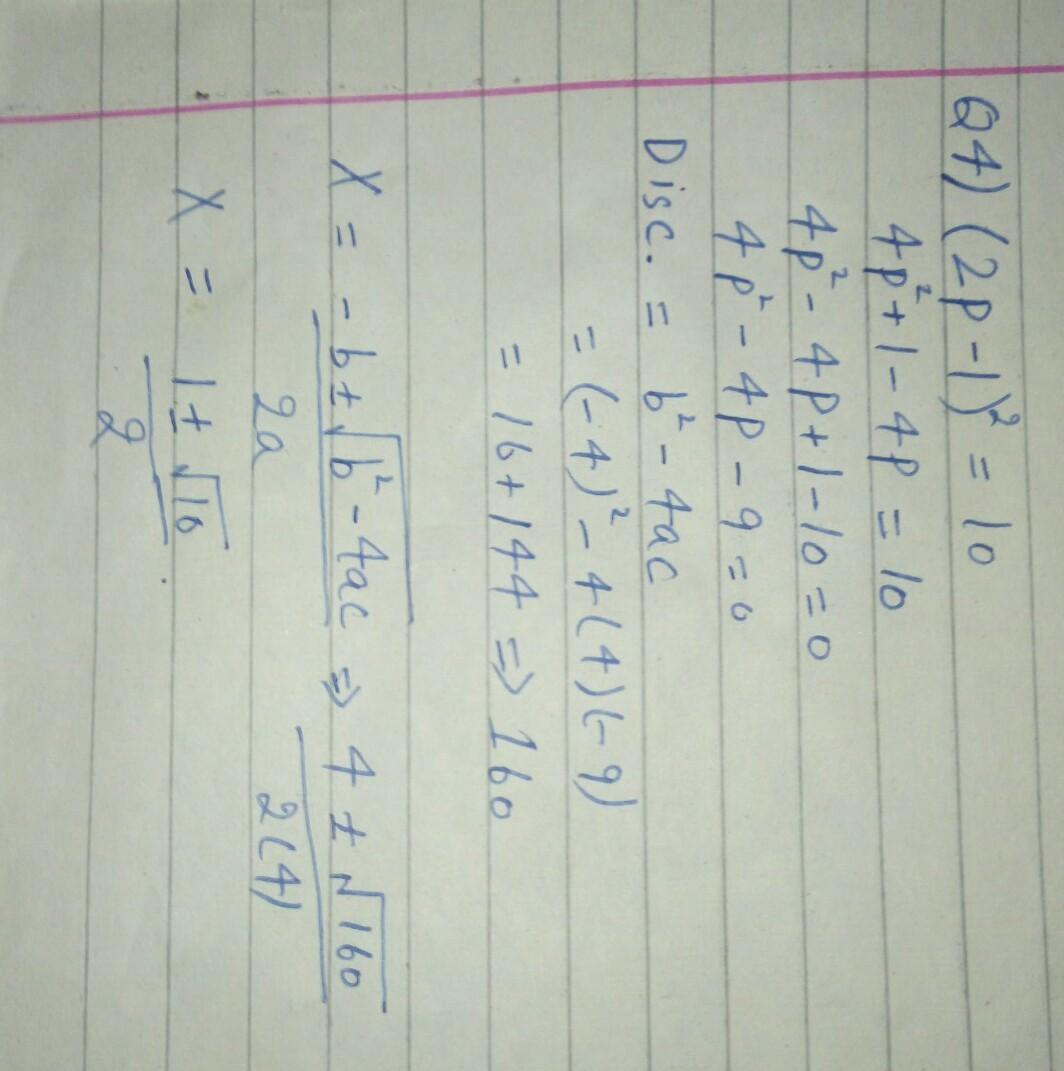 Q4) (2p-1)² = 10
4p²+1-4p = 10
4p²-4p+1-10=0
4p²-4p-9=0
Disc. = b²-4ac
= (-4)²-4(4)(-9)
= 16+144 => 160
X = -b±√b²-4ac => 4 ± √160
2a 2(4)
X = 1±√10
2